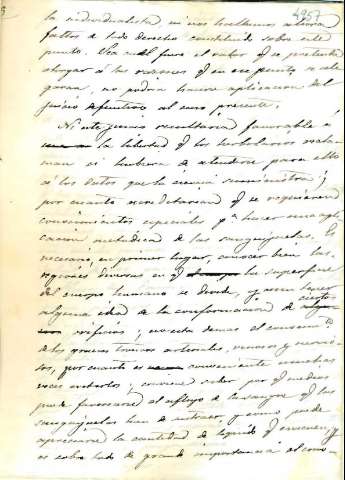 4957
la individualista, ni nos hallemos ahora
faltos de todo derecho constituido sobre este
punto. Sea cual fuere el valor q se pretenda
otorgar á las razones q en ese punto se ale
garan, no podria hacerse aplicacion del
juicio definitivo al caso presente.
Ni este juicio resultaria favorable á
la libertad q los herbolarios recla
man si hubiera de atenderse para ello
á los datos que la ciencia suministra;
por cuanto acreditarian q se requieren
conocimientos especiales pª hacer una apli
cacion metodica de las sanguijuelas. Es
necesario, en primer lugar, conocer bien las
regiones diversas en q la superficie
del cuerpo humano se divide, y aun tener
alguna idea de la conformacion de ciertos
orificios; no está demas el conocimto
de los gruesos troncos arteriales, venosos y nervio
sos, por cuanto es conveniente muchas
veces evitarlos; conviene saber por q medios
puede favorecerse el aflujo de la sangre q las
sanguijuelas han de extraer, y como puede
apreciarse la cantidad de liquido q evacuen, y
es sobre todo de grande importancia el cono-